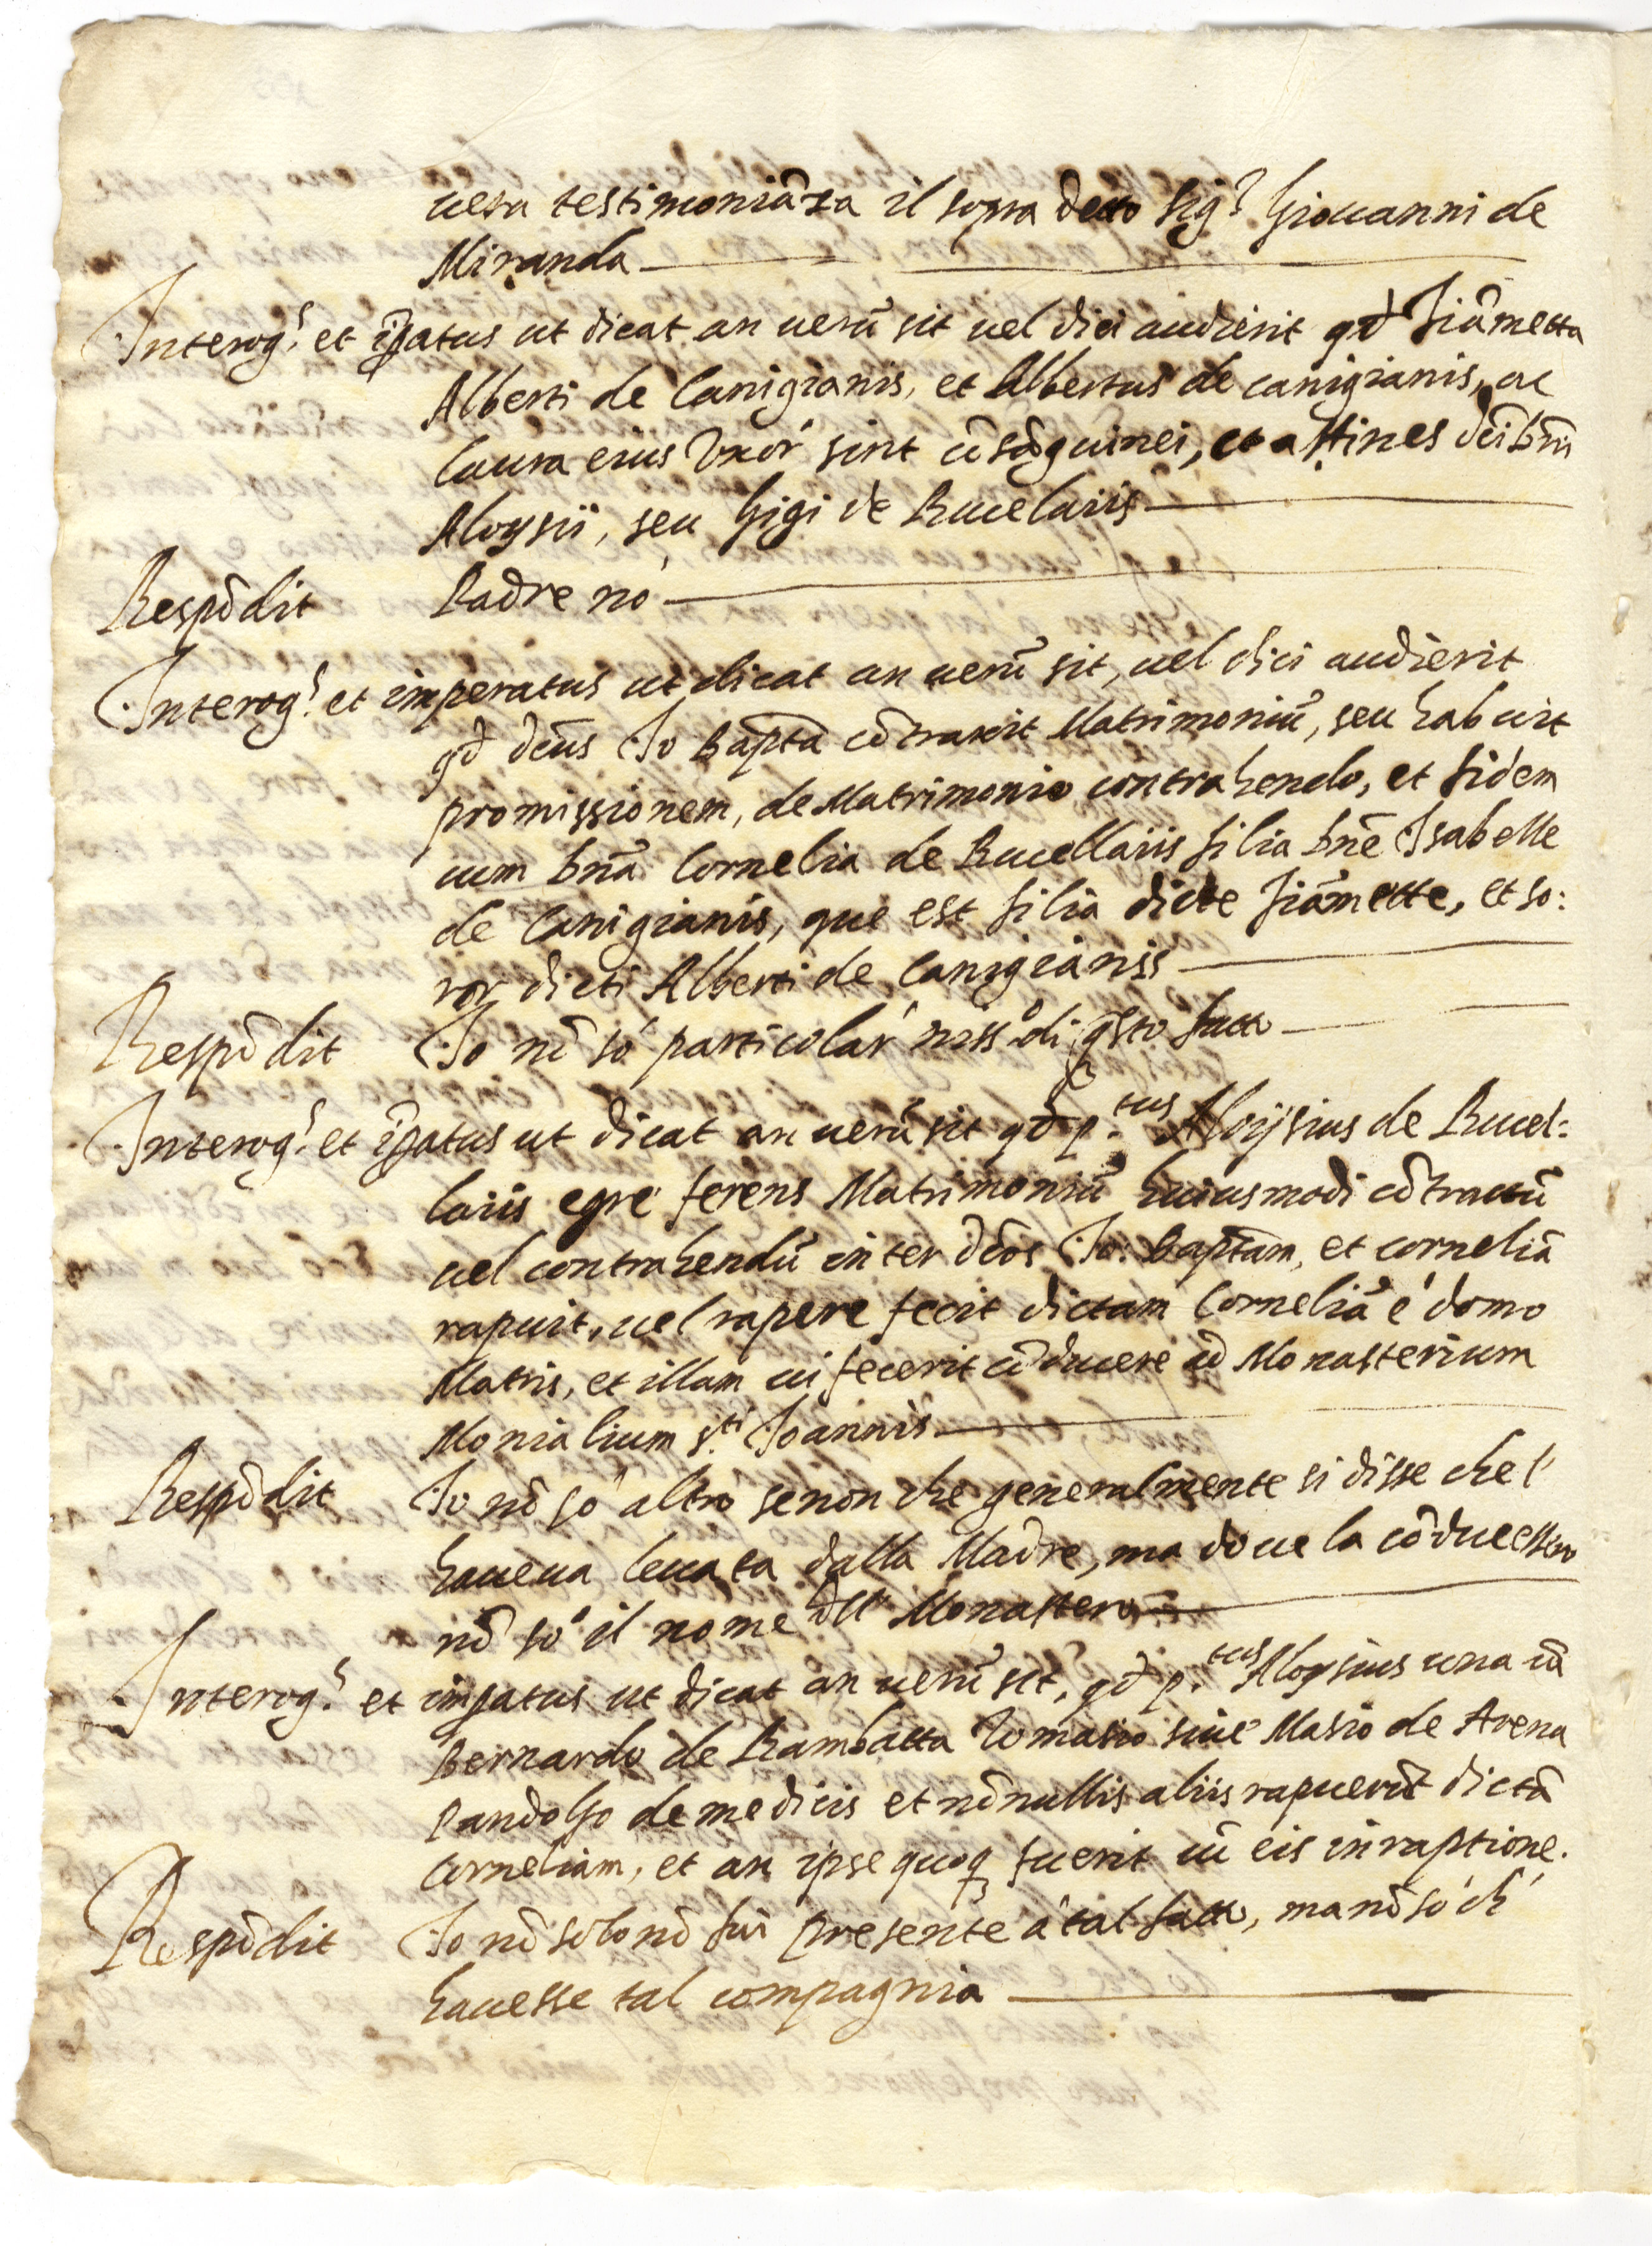 uera testimoniãza il sopra detto Sig.r Giouanni de
Miranda
Interog.s et ip̃atus ut dicat an uerũ sit uel dici audierit qđ Fiãmetta
Alberti de Canigianis, et Albertus de canigianis, ac
Laura eius Vxor sint cõsãguinei, et affines
Aloysii, seu Gigi de Rucelariis
Respõdit Padre nò
Interog.s et imperatus ut dicat an uerũ sit, uel dici audierit
qđ dẽus Io Bapta cõtraxit Matrimoniũ, seu habuit
promissionem, de Matrimonio contrahendo, et fidem
cum bñã Cornelia de Rucellariis filia bñe Isabelle
de Canigianis, que est filia dicte Fiãmette, et so:
ror dicti Alberti de Canigianis
Respõdit Io nõ sò particolar niss.o di q̃sto fatto
Interog.s et ip̃atus ut dicat an uerũ sit qđ p.tus Aloysius de Rucel:
lariis egrè ferens Matrimoniũ huiusmodi cõtractũ
uel contrahendũ inter dẽos Io: Baptam, et corneliã
rapuit, uel rapere fecit dictam Corneliã è domo
Matris, et illam ui fecerit cõducere ad Monasterium
Monialium s.ti Joannis
Respõdit Io nõ sò altro senon che generalmente si disse che l'
haueua leuata dalla Madre, ma doue la cõducessero
nõ sò il nome dll' Monastero
Interog.s et imp̃atus ut dicat an uerũ sit, qđ p.tus Aloysius una cũ
Bernardo de Rambatta Tomasio siue Masio de Arena
Pandolfo de medicis et nõnullis aliis rapuerũt dictã
Corneliam, et an ipse quoq fuerit cũ eis in raptione.
Respõdit Io nõ solo nõ fui presente à tal fatto, ma nõ sò ch'
hauesse tal compagnia